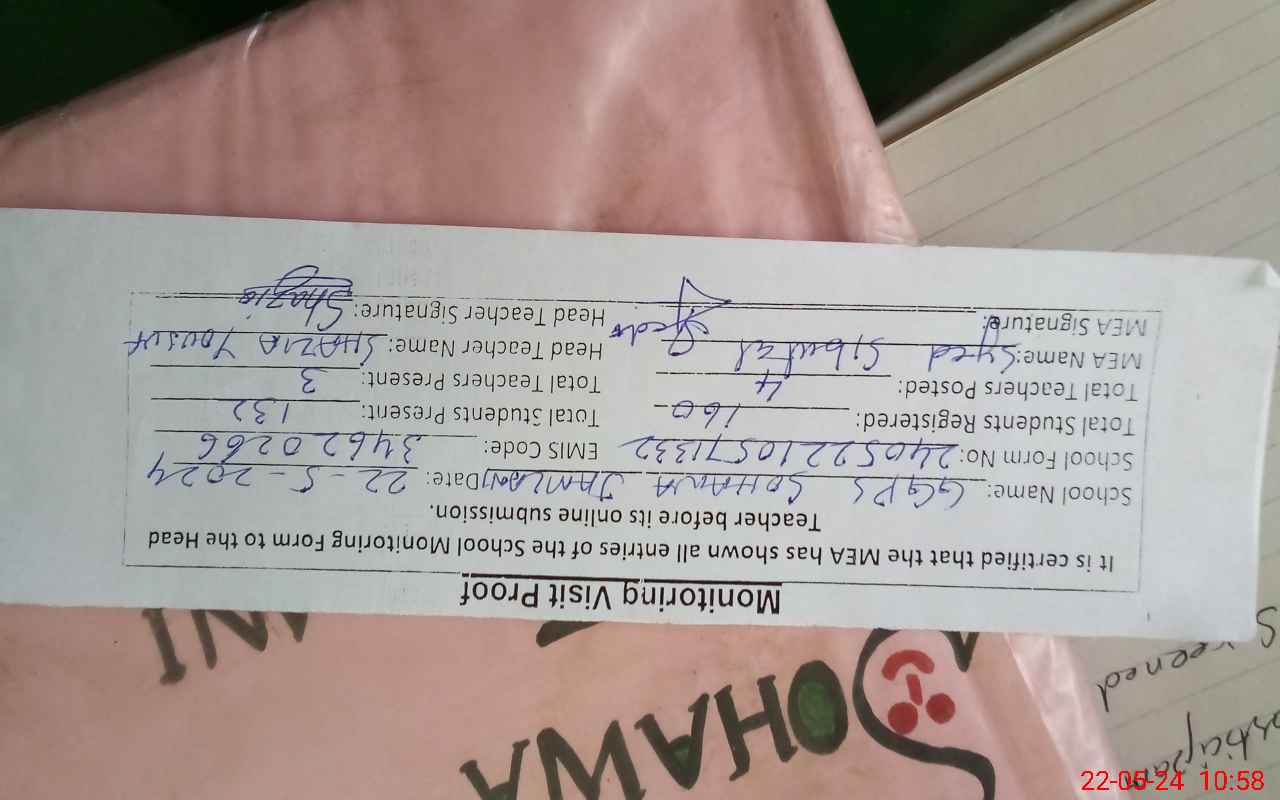 Monitoring Visit Proof
It is certified that the MEA has shown all entries of the School Monitoring Form to the Head
Teacher before its online submission.
School Name: GGPS SOHAWA JAMLANI Date: 22-5-2024
School Form No: 24052210571332 EMIS Code: 34620266
Total Students Registered: 160 Total Students Present: 132
Total Teachers Posted: 4 Total Teachers Present: 3
MEA Name: Syed Sibutal Head Teacher Name: SHAZIA YOUSUF
MEA Signature: Head Teacher Signature: Shazia
SOHAWA
Screened
22-05-24 10:58